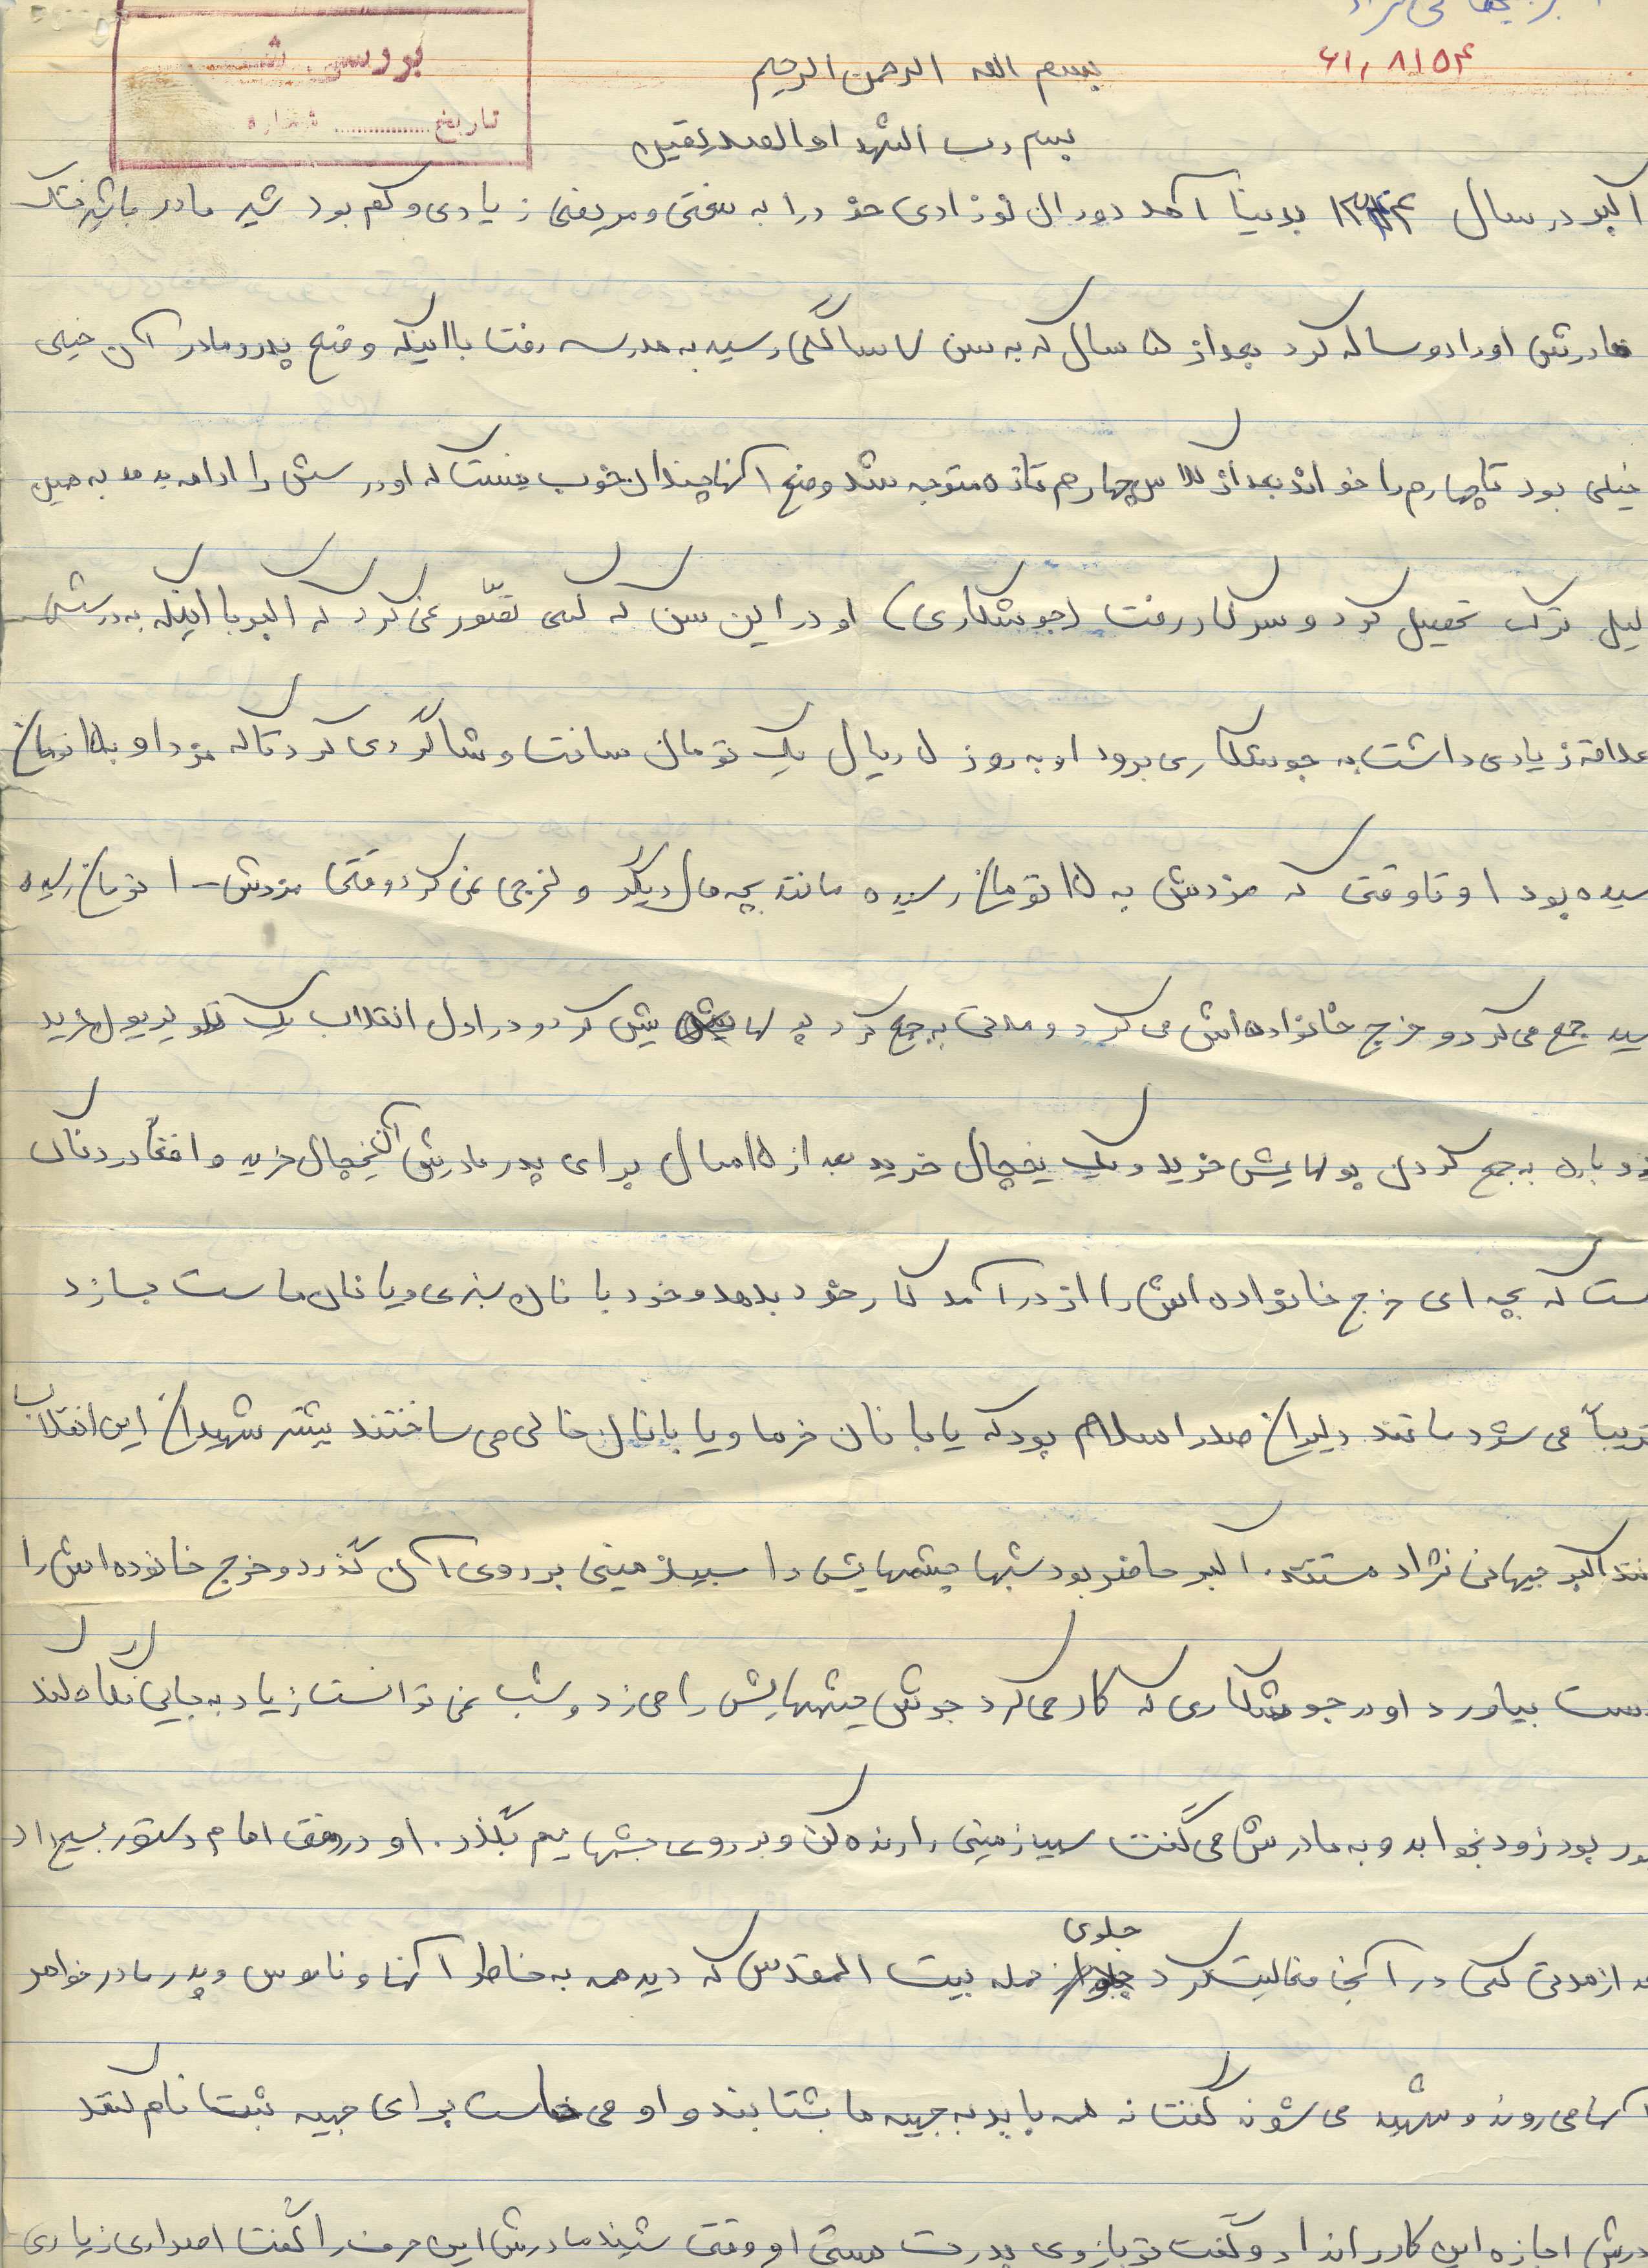 ۶۱۰۸۱۵۴
بررسی شد
تاریخ ............... شماره
بسم الله الرحمن الرحیم
بسم رب الشهدا و الصدیقین
اکبر در سال بدنیا آمد دوران نوزادی خود را به سختی و مریضی زیادی و کم بود شیر مادر با شیر خشک
مادرش او را دو ساله کرد بعد از ۵ سال که به سن ۷ سالگی رسید به مدرسه رفت با اینکه وضع پدر و مادر آن خیلی
خیلی بود تا چهارم را خواند بعد از کلاس چهارم تازه متوجه شد وضع آنها چندان خوب نیست که او درسش را ادامه بدهد به همین
لیل ترک تحصیل کرد و سر کار رفت (جوشکاری) او در این سن که کسی تصّور نمی کرد که اکبر با اینکه به درسش
علاقه زیادی داشت به جوشکاری برود او به روز ۵ ریال یک تومان ساخت و شاگردی کرد تا که مزد او به ۱۵ تومان
سیده بود او تا وقتی که مزدش به ۱۵ تومان رسیده مانند بچه های دیگر ولخرجی نمی کرد وقتی مزدش ۱۰ تومان رسیده
سید جمع می کرد و خرج خانواده اش می کرد و مدتی به جمع کرد پولهایش کرد و در اول انقلاب یک تلویزیون خرید
دوباره به جمع کردن پولهایش خرید و یک یخچال خرید بعد از ۱۵ سال برای پدر مادرش آن یخچال خرید و افتخار دردناک
ست که بچه ای خرج خانواده اش را از درآمد کار خود بدهد و خود با نان سبزی و یا نان ماست بسازد
تقریباً می شود مانند دلیران صدر اسلام بود که یا با نان خرما و یا با نان خالی می ساختند بیشتر شهیدان این انقلاب
نند اکبر جیهانی نژاد هستند. اکبر حاضر بود شبها چشمهایش را سیب زمینی بر روی آن گذرد و خرج خانوده اش را
دست بیاورد او در جوشکاری که کار می کرد جوش چشمهایش را می زد و شب نمی توانست زیاد به جایی نگاه کند
ور بود زود بخوابد و به مادرش می گفت سیب زمینی را رنده کن و بر روی چشمهایم بگذار. او در وقت امام دستور بسیج داد
عد از مدتی کمی در آنجا فعالیت کرد جلوی حمله بیت المقدس که دید همه به خاطر آنها و ناموس و پدر مادر خواهر
آنها می روند و شهید می شوند گفت نه همه باید به جبهه ها بشتابند و او می خاست برای جبهه ثبت نام کند
درش اجازه این کار را نداد و گفت تو بازوی پدرت هستی او وقتی شنید مادرش این حرف را گفت اصراری زیادی